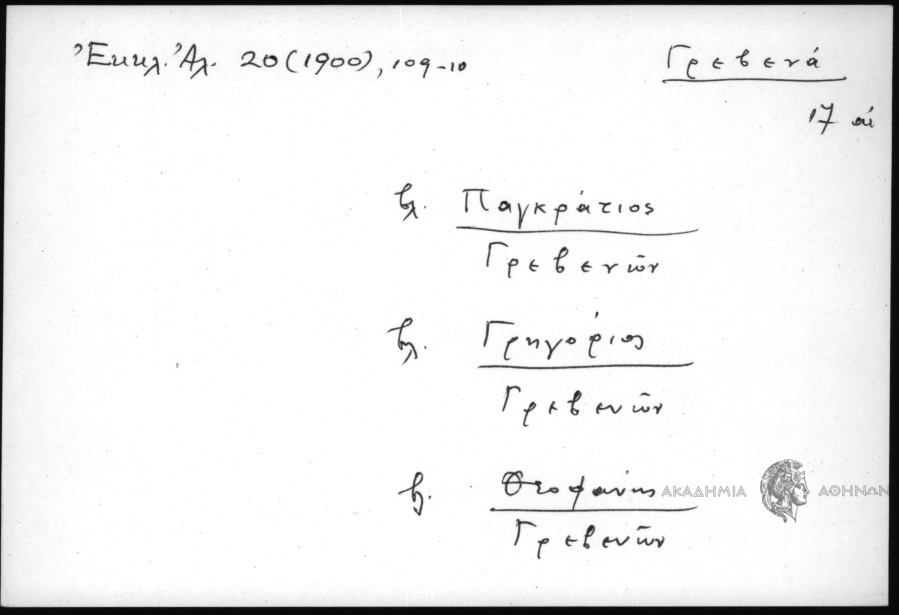 Ἐκκλ. Ἀλ. 20 (1900), 109-10
Γρεβενά
17 αἰ
βλ. Παγκράτιος
Γρεβενῶν
βλ. Γρηγόριος
Γρεβενῶν
βλ. Θεοφάνης
Γρεβενῶν
ΑΚΑΔΗΜΙΑ ΑΘΗΝΩΝ